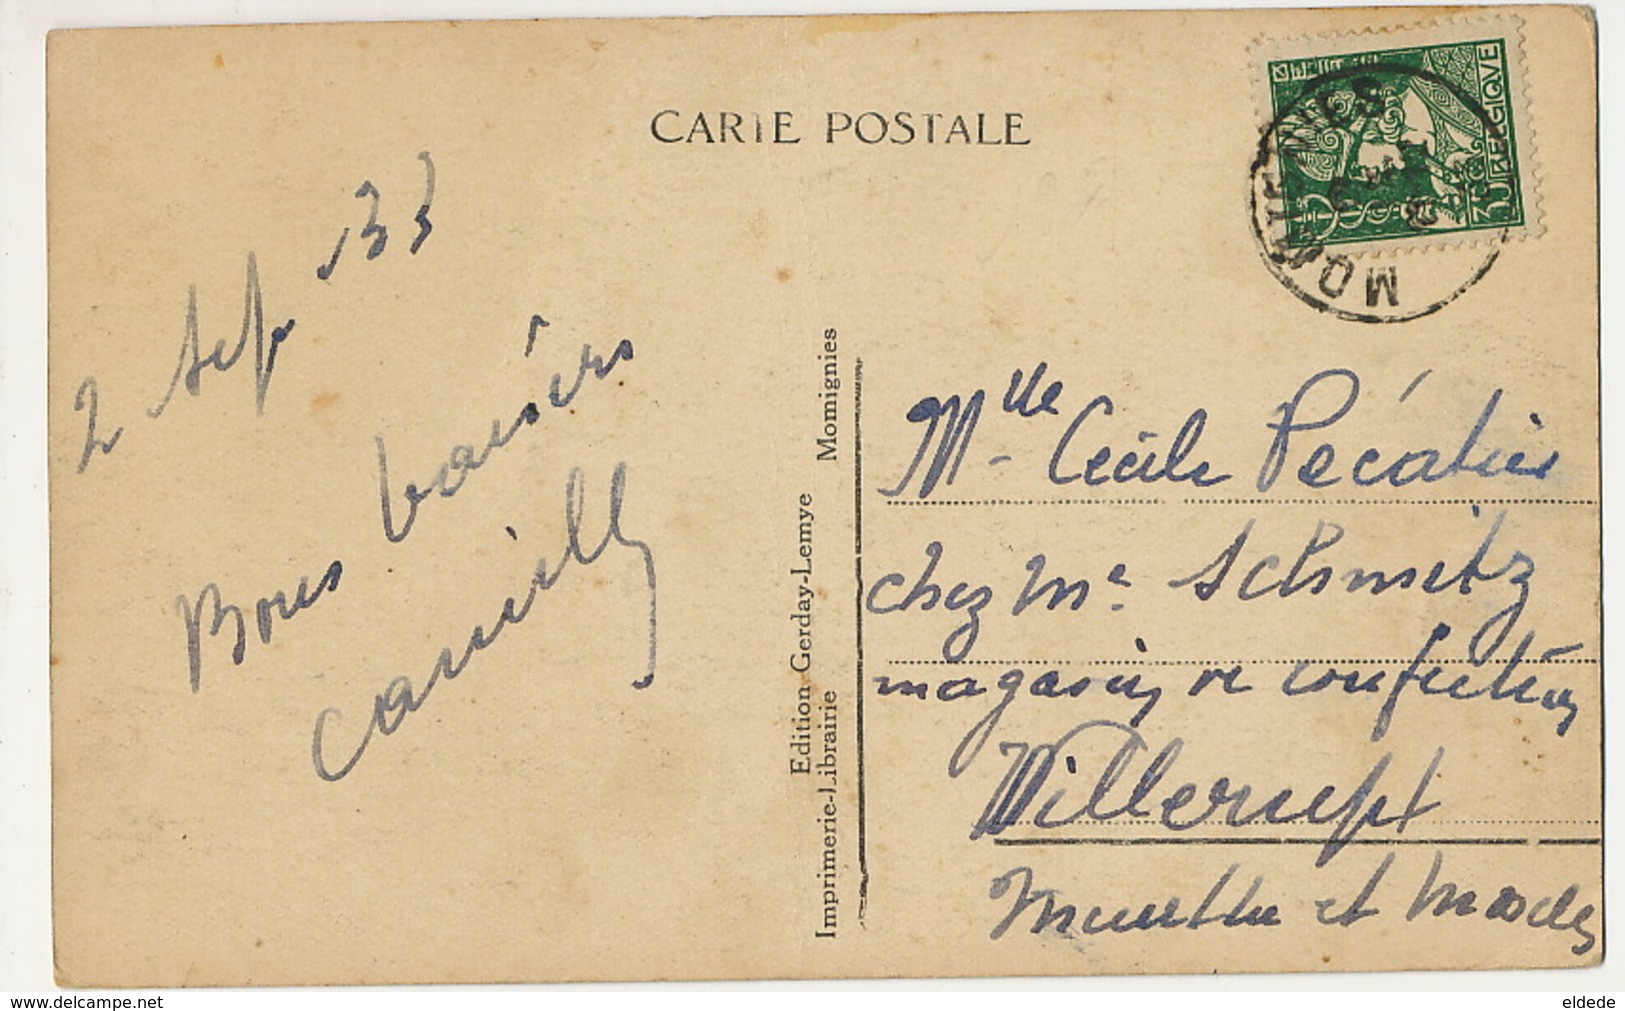 CARTE POSTALE
BELGIQUE
MOMIGNIES
2 Sep 33
Bons baisers
Camille
Edition Gerday-Lemye Momignies
Imprimerie-Librairie
Mlle Cécile Pécatier
chez Me Schmitz
magasin de confection
Villerupt
Meurthe et Moselle
www.delcampe.net
eldede